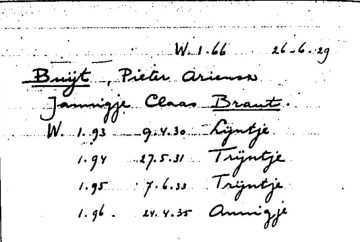 W. 1.66 26-6-29
Buijt, Pieter Ariensz
Jannigje Claas Braut.
W. 1.93 9.4.30 Lijntje
1.94 27.5.31 Trijntje
1.95 7.6.33 Trijntje
1.96. 24.4.35 Annigje